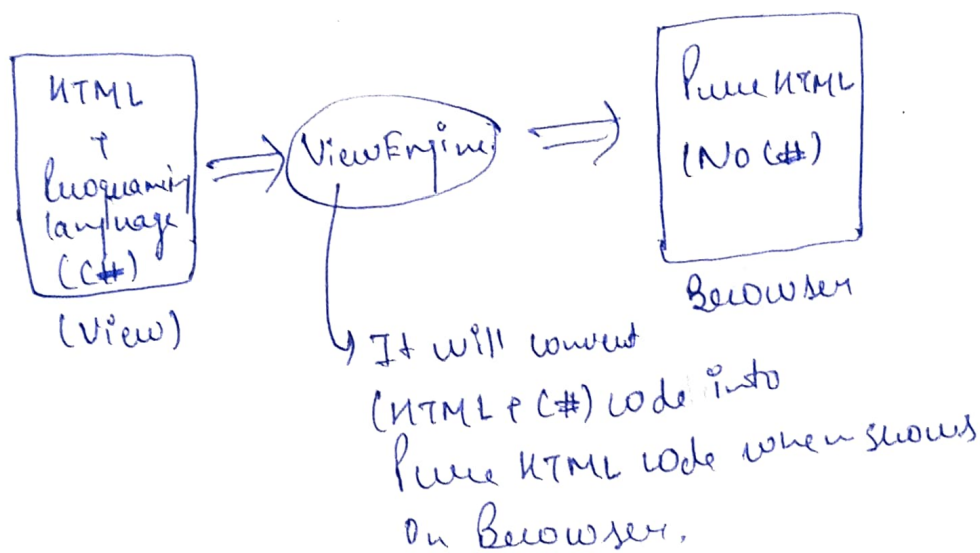 HTML
+
Programing
language
(C#)
(View)
ViewEngine
Pure HTML
(No C#)
Browser
It will convert
(HTML + C#) code into
Pure HTML code when shows
on Browser.